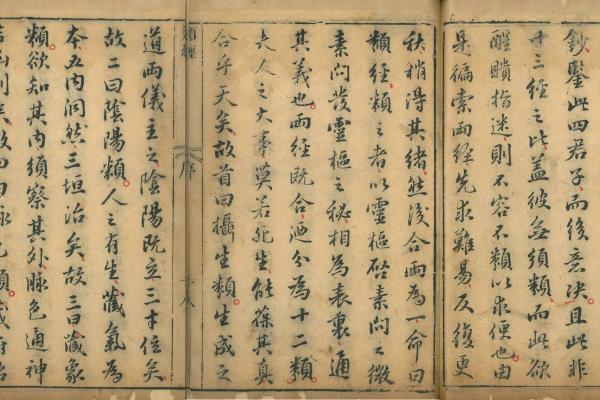 鈔鑒此四君子而後意決且此非
十三經之比蓋彼無須類而此欲
醒瞶指迷則不容不類以求便也由
是徧索兩經先求難易反復更
秋稍得其緒然後合兩為一命曰
類經類之者以靈樞啓素問之微
素問發靈樞之秘相為表裏通
其義也兩經既合廼分為十二類
夫人之大事莫若死生能葆其真
合乎天矣故首曰攝生類生成之
類經 序 十八
道兩儀主之陰陽既立三才位矣
故二曰陰陽類人之有生藏氣為
本五內洞然三垣治矣故三曰藏象
類欲知其內須察其外脉色通神